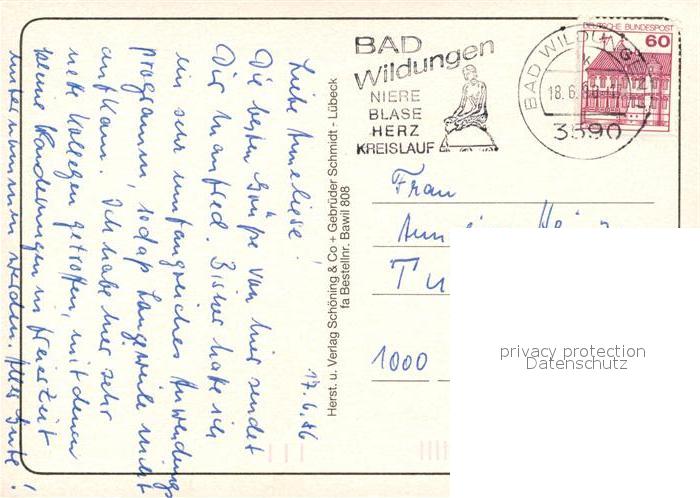 17.6.86
Liebe Anneliese!
Die besten Grüße von hier sendet
Dir Manfred. Bisher habe ich
ein sehr umfangreiches Anwendungs
programm, sodaß Langeweile nicht
aufkam. Ich habe hier sehr
nette Kollegen getroffen, mit denen
kleine Wanderungen in Freizeit
unternommen werden. Alles Gute!
Herst. u. Verlag Schöning & Co + Gebrüder Schmidt - Lübeck
fa Bestellnr. Bawil 808
BAD
Wildungen
NIERE
BLASE
HERZ
KREISLAUF
BAD WILDUNGEN
18.6.
3590
DEUTSCHE BUNDESPOST
60
Frau
1000
privacy protection
Datenschutz